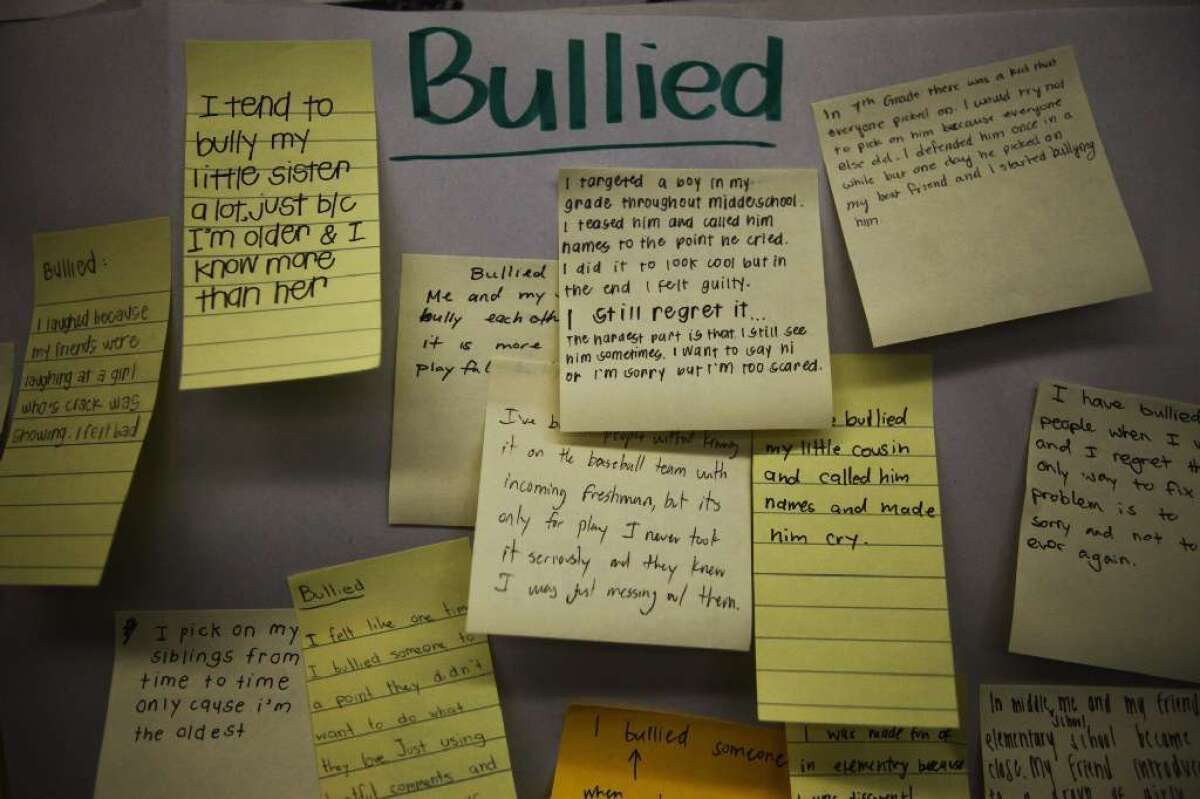 Bullied
I tend to
bully my
little sister
a lot, just b/c
I'm older & I
know more
than her
In 7th Grade there was a kid that
everyone picked on. I would try not
to pick on him because everyone
else did. I defended him once in a
while but one day he picked on
my best friend and I started bullying
him.
I targeted a boy in my
grade throughout middleschool.
I teased him and called him
names to the point he cried.
I did it to look cool but in
the end I felt guilty.
I still regret it...
The hardest part is that I still see
him sometimes. I want to say hi
or I'm sorry but I'm too scared.
Bullied:
I laughed because
my friends were
laughing at a girl
who's crack was
showing. I felt bad
Bullied
Me and my
bully each oth
it is more
playful
I've b
people without
it on the baseball team with
incoming freshman, but its
only for play I never took
it seriously and they knew
I was just messing w/ them.
bullied
my little cousin
and called him
names and made
him cry.
I have bullied
people when I
and I regret th
only way to fix
problem is to
sorry and not to
ever again.
I pick on my
siblings from
time to time
only cause i'm
the oldest
Bullied
I felt like one tim
I bullied someone to
a point they didn't
want to do what
they love Just using
comments and
I bullied someone
when
I was made fun of
in elementry because
I was different!
In middle school me and my friend
elementary school became
close. My friend introduc